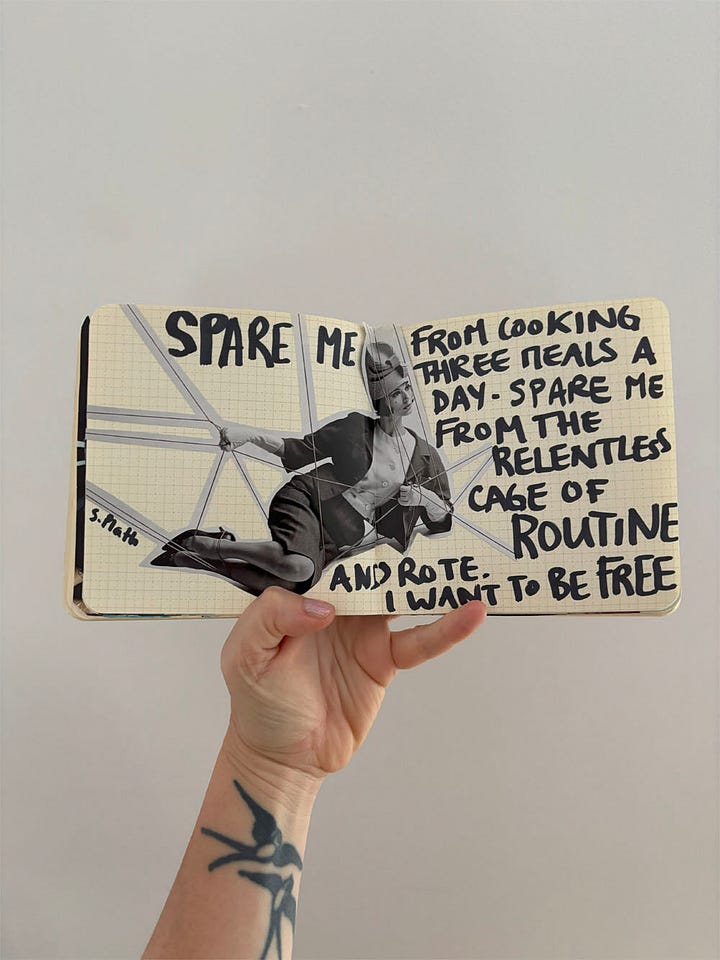 SPARE ME
FROM COOKING
THREE MEALS A
DAY - SPARE ME
FROM THE
RELENTLESS
CAGE OF
ROUTINE
AND ROTE.
I WANT TO BE FREE
S. Plath